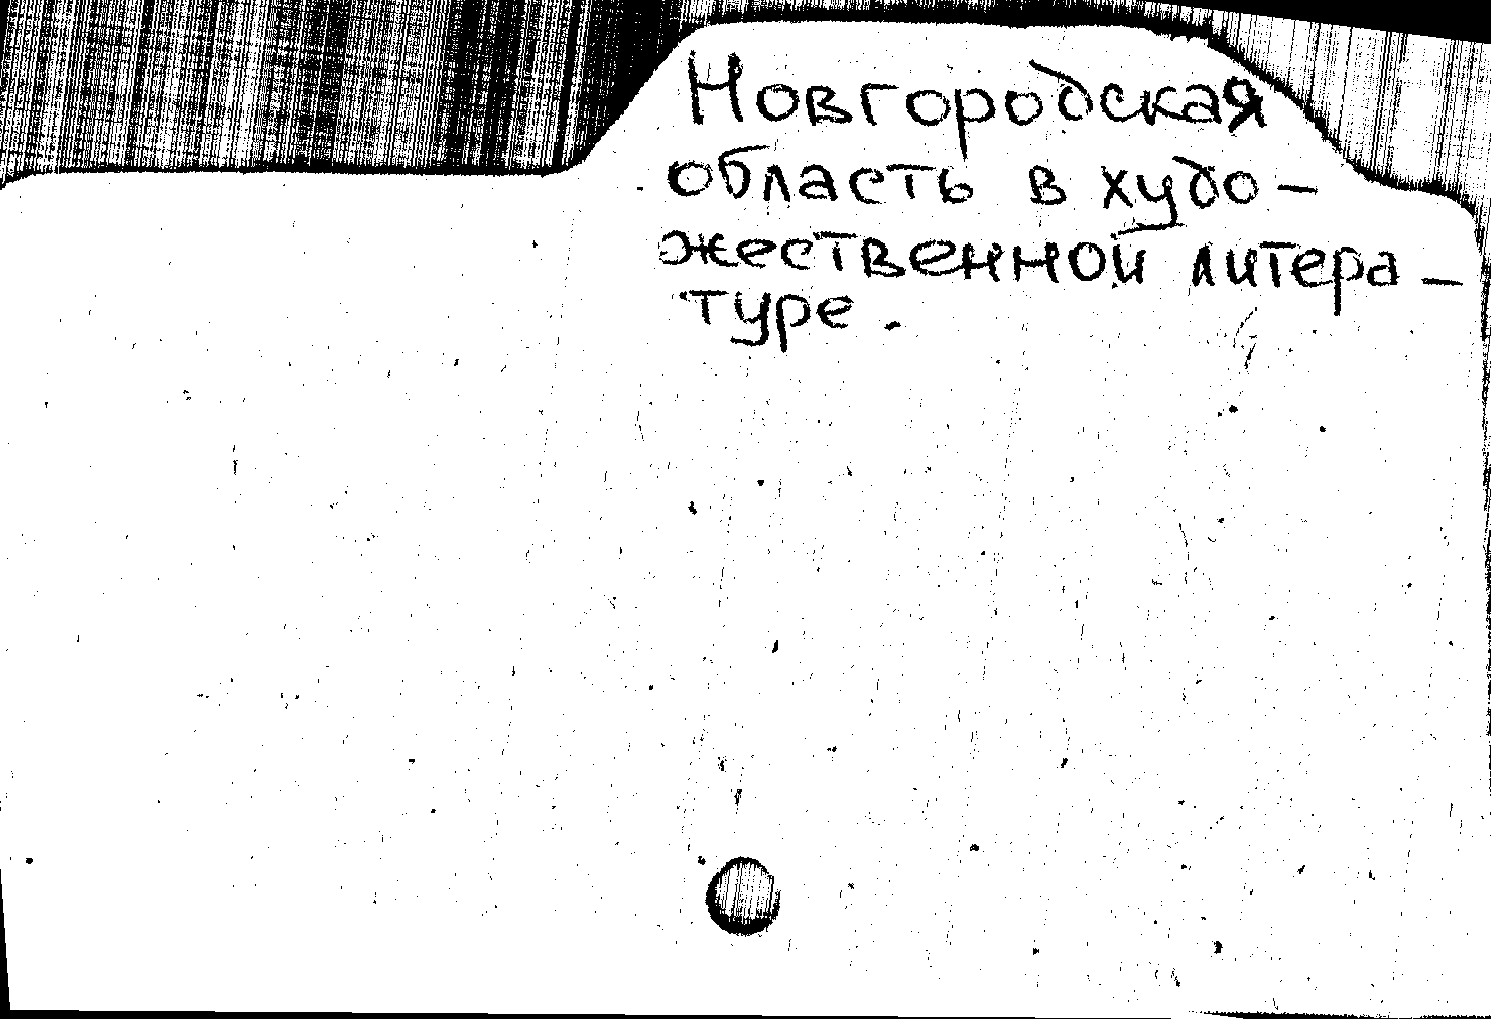 Новгородская
область в худо-
жественной литера-
туре.